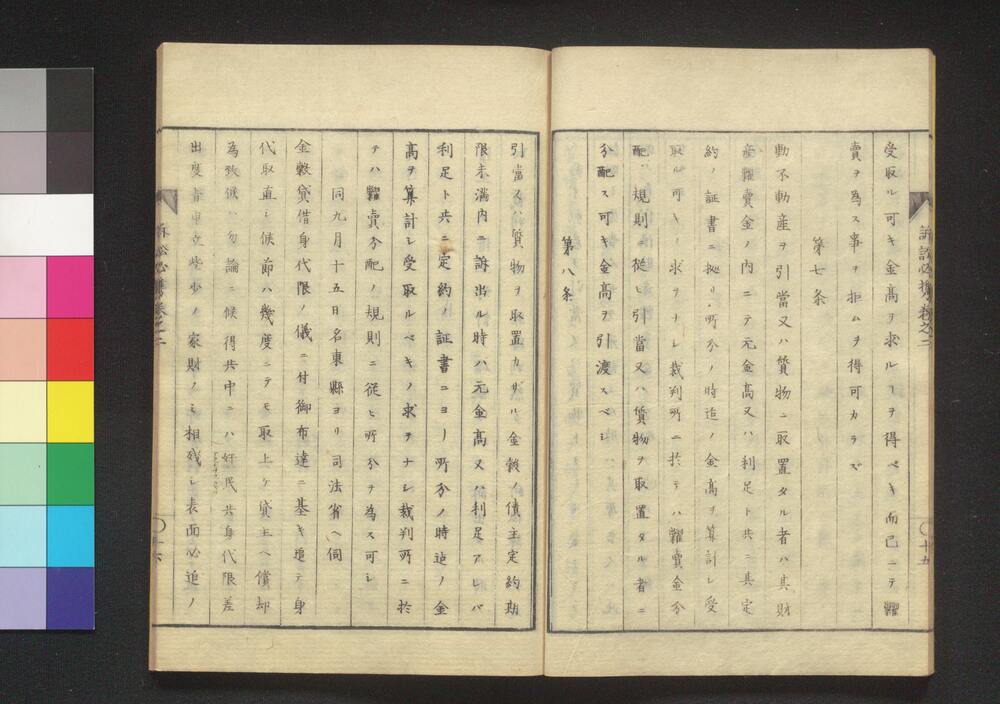 訴訟必携巻之二
〇十五
受取ル可キ金高ヲ求ルヿヲ得ベキ而已ニテ糶
賣ヲ為ス事ヲ拒ムヲ得可カラズ
第七条
動不動産ヲ引當又ハ質物ニ取置タル者ハ其財
産糶賣金ノ内ニテ元金高又ハ利足ト共ニ其定
約ノ証書ニ拠リ所分ノ時迠ノ金高ヲ算計シ受
取ル可キノ求ヲナシ裁判所ニ於テハ糶賣金分
配ノ規則ニ従ヒ引當又ハ質物ヲ取置タル者ニ
分配ス可キ金高ヲ引渡スベシ
第八条
引當又ハ質物ヲ取置カザル金穀ノ債主定約期
限未満内ニ訴出ル時ハ元金高又ハ利足アレバ
利足ト共ニ定約ノ証書ニヨリ所分ノ時迠ノ金
高ヲ算計シ受取ルベキノ求ヲナシ裁判所ニ於
テハ糶賣分配ノ規則ニ従ヒ所分ヲ為ス可シ
同九月十五日名東縣ヨリ司法省ヘ伺
金穀貸借身代限ノ儀ニ付御布達ニ基キ追テ身
代取直シ候節ハ幾度ニテモ取上ケ貸主ヘ償却
為致候ハ勿論ニ候得共中ニハ奸民共身代限差
出度旨申立些少ノ家財ノミ相残シ表面必迫ノ
訴訟必携巻之二
〇十六